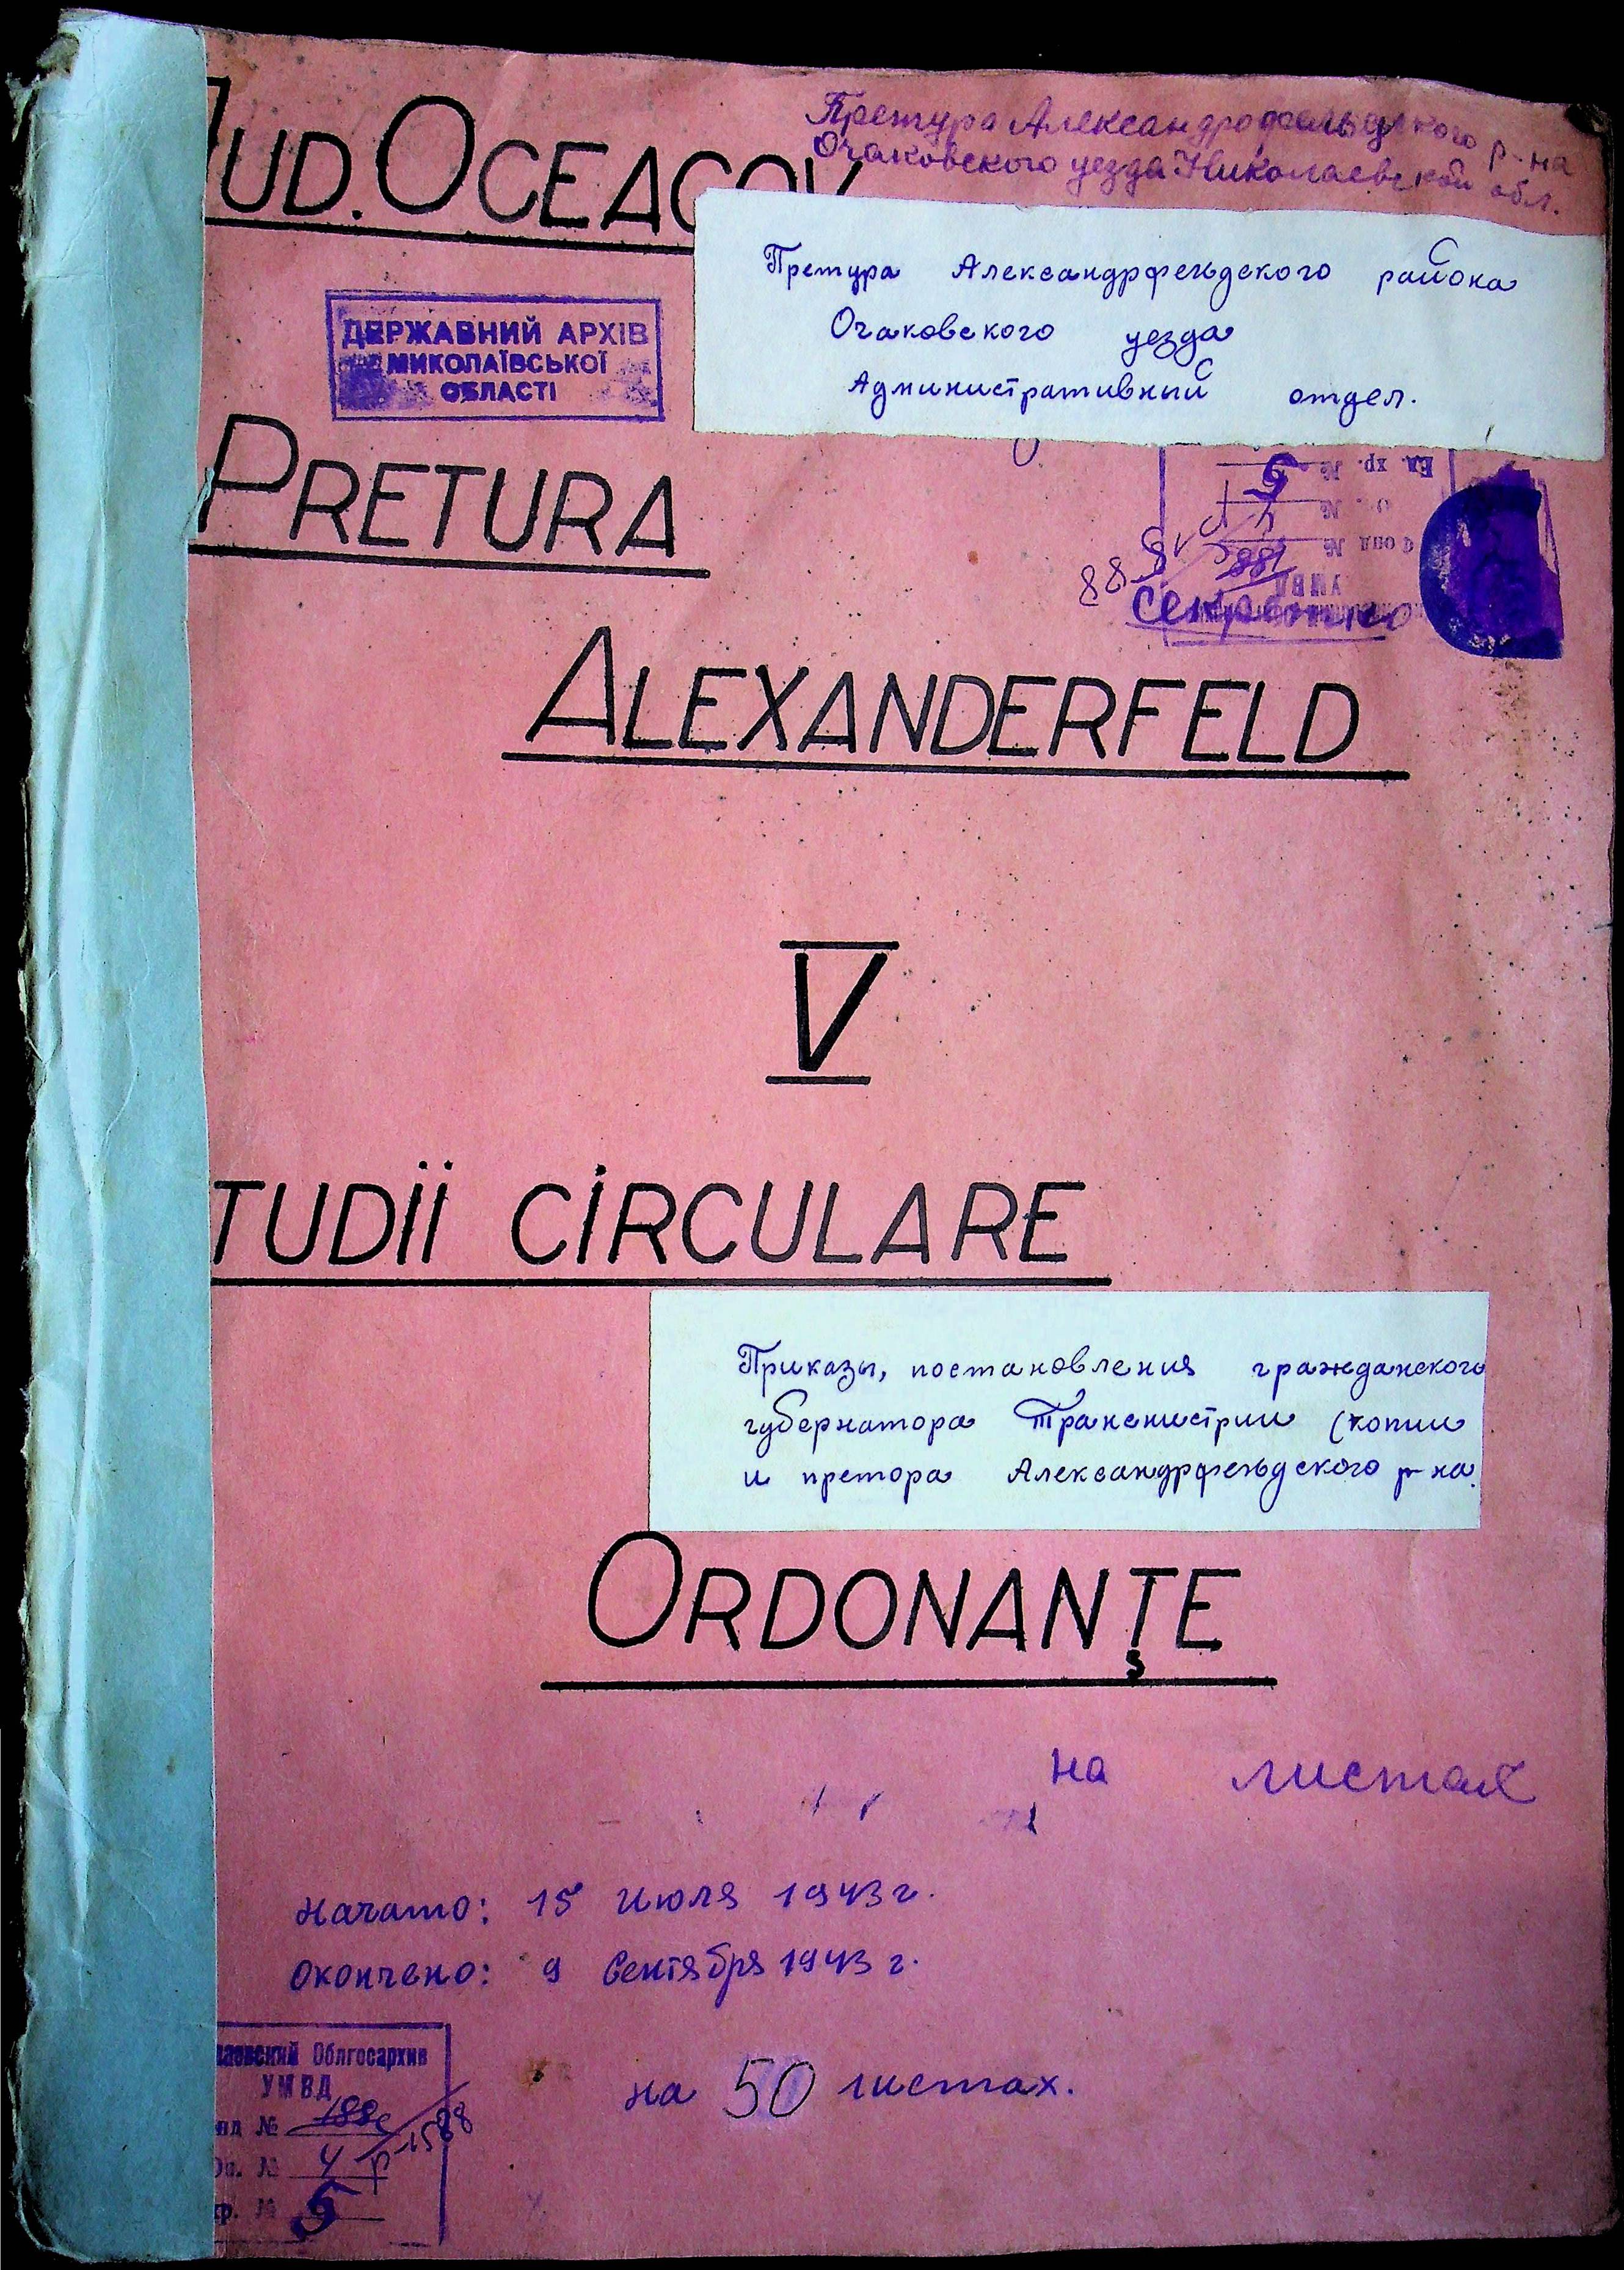 Претура Александрофельдского р-на
Очаковского уезда Николаевской обл.
JUD. OCEACOV
Претура Александрфельдского района
Очаковского уезда
Административный отдел.
ДЕРЖАВНИЙ АРХІВ
МИКОЛАЇВСЬКОЇ
ОБЛАСТІ
PRETURA
Ед. хр. № 5
Фонд №
УМВД
секретно
ALEXANDERFELD
V
TUDII CIRCULARE
Приказы, постановления гражданского
губернатора Транснистрии (копии
и претора Александрфельдского р-на.
ORDONANŢE
на листах
Начато: 15 июля 1943 г.
Окончено: 9 Сентября 1943 г.
Облгосархив
УМВД
на 50 листах.
№
№ 4
№ 5